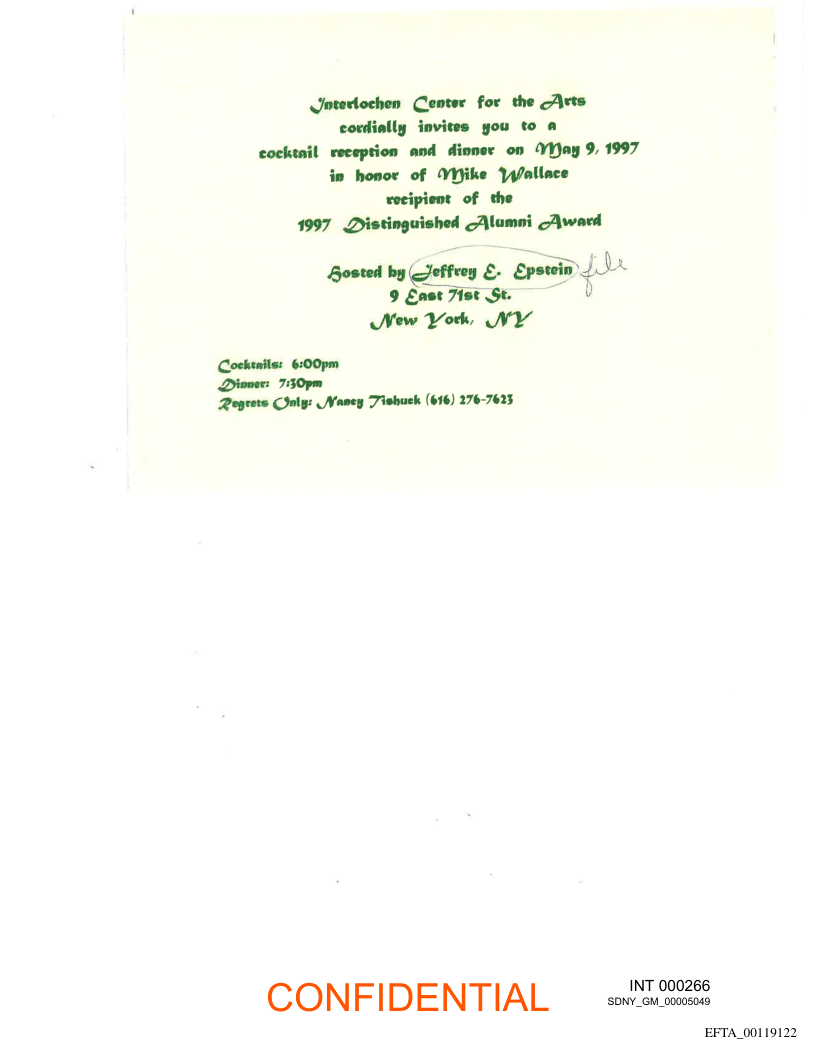 Interlochen Center for the Arts
cordially invites you to a
cocktail reception and dinner on May 9, 1997
in honor of Mike Wallace
recipient of the
1997 Distinguished Alumni Award
Hosted by Jeffrey E. Epstein file
9 East 71st St.
New York, NY
Cocktails: 6:00pm
Dinner: 7:30pm
Regrets Only: Nancy Tishuck (616) 276-7623
CONFIDENTIAL
INT 000266
SDNY_GM_00005049
EFTA_00119122